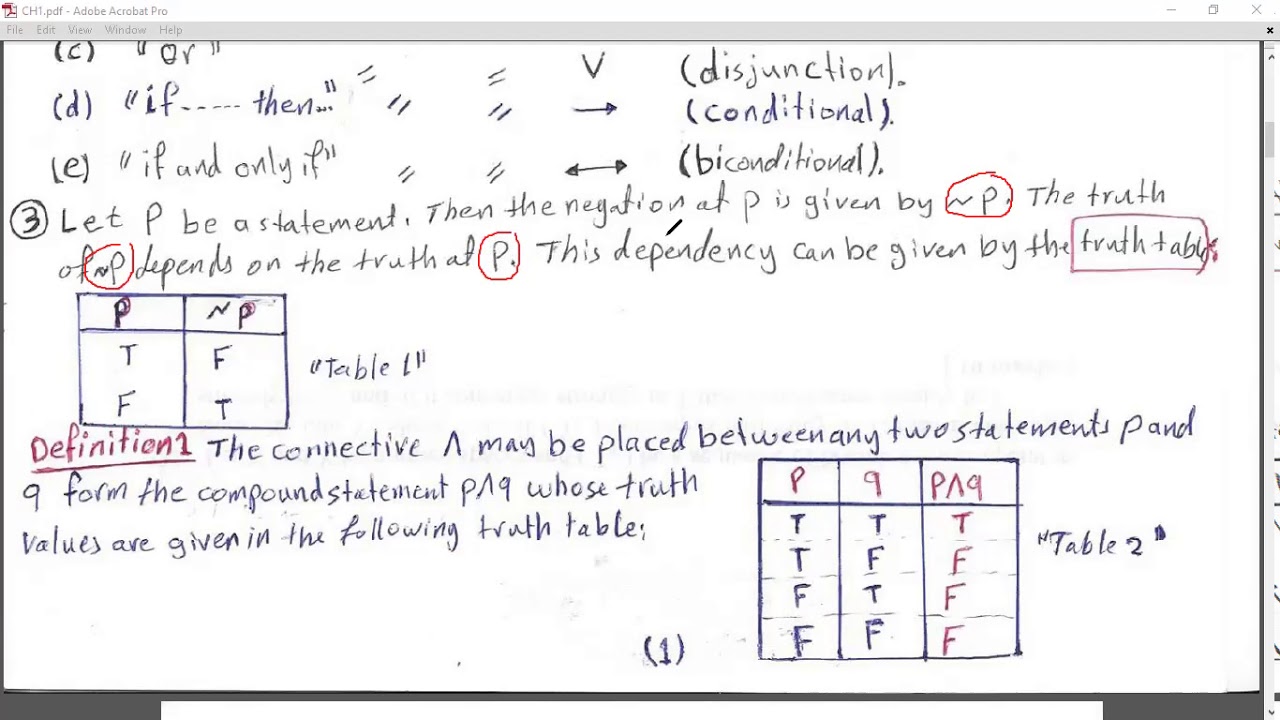 CH1.pdf - Adobe Acrobat Pro
File Edit View Window Help
(c) "or" = = V (disjunction).
(d) "if ----- then..." " " → (conditional).
(e) "if and only if" " " ↔ (biconditional).
③ Let P be a statement. Then the negation at p is given by ~P. The truth
of ~P depends on the truth at P. This dependency can be given by the truth table:
P ~P
T F
F T
"Table 1"
Definition1 The connective Λ may be placed between any two statements p and
q form the compound statement pΛq whose truth
values are given in the following truth table:
P q PΛq
T T T
T F F
F T F
F F F
"Table 2"
(1)